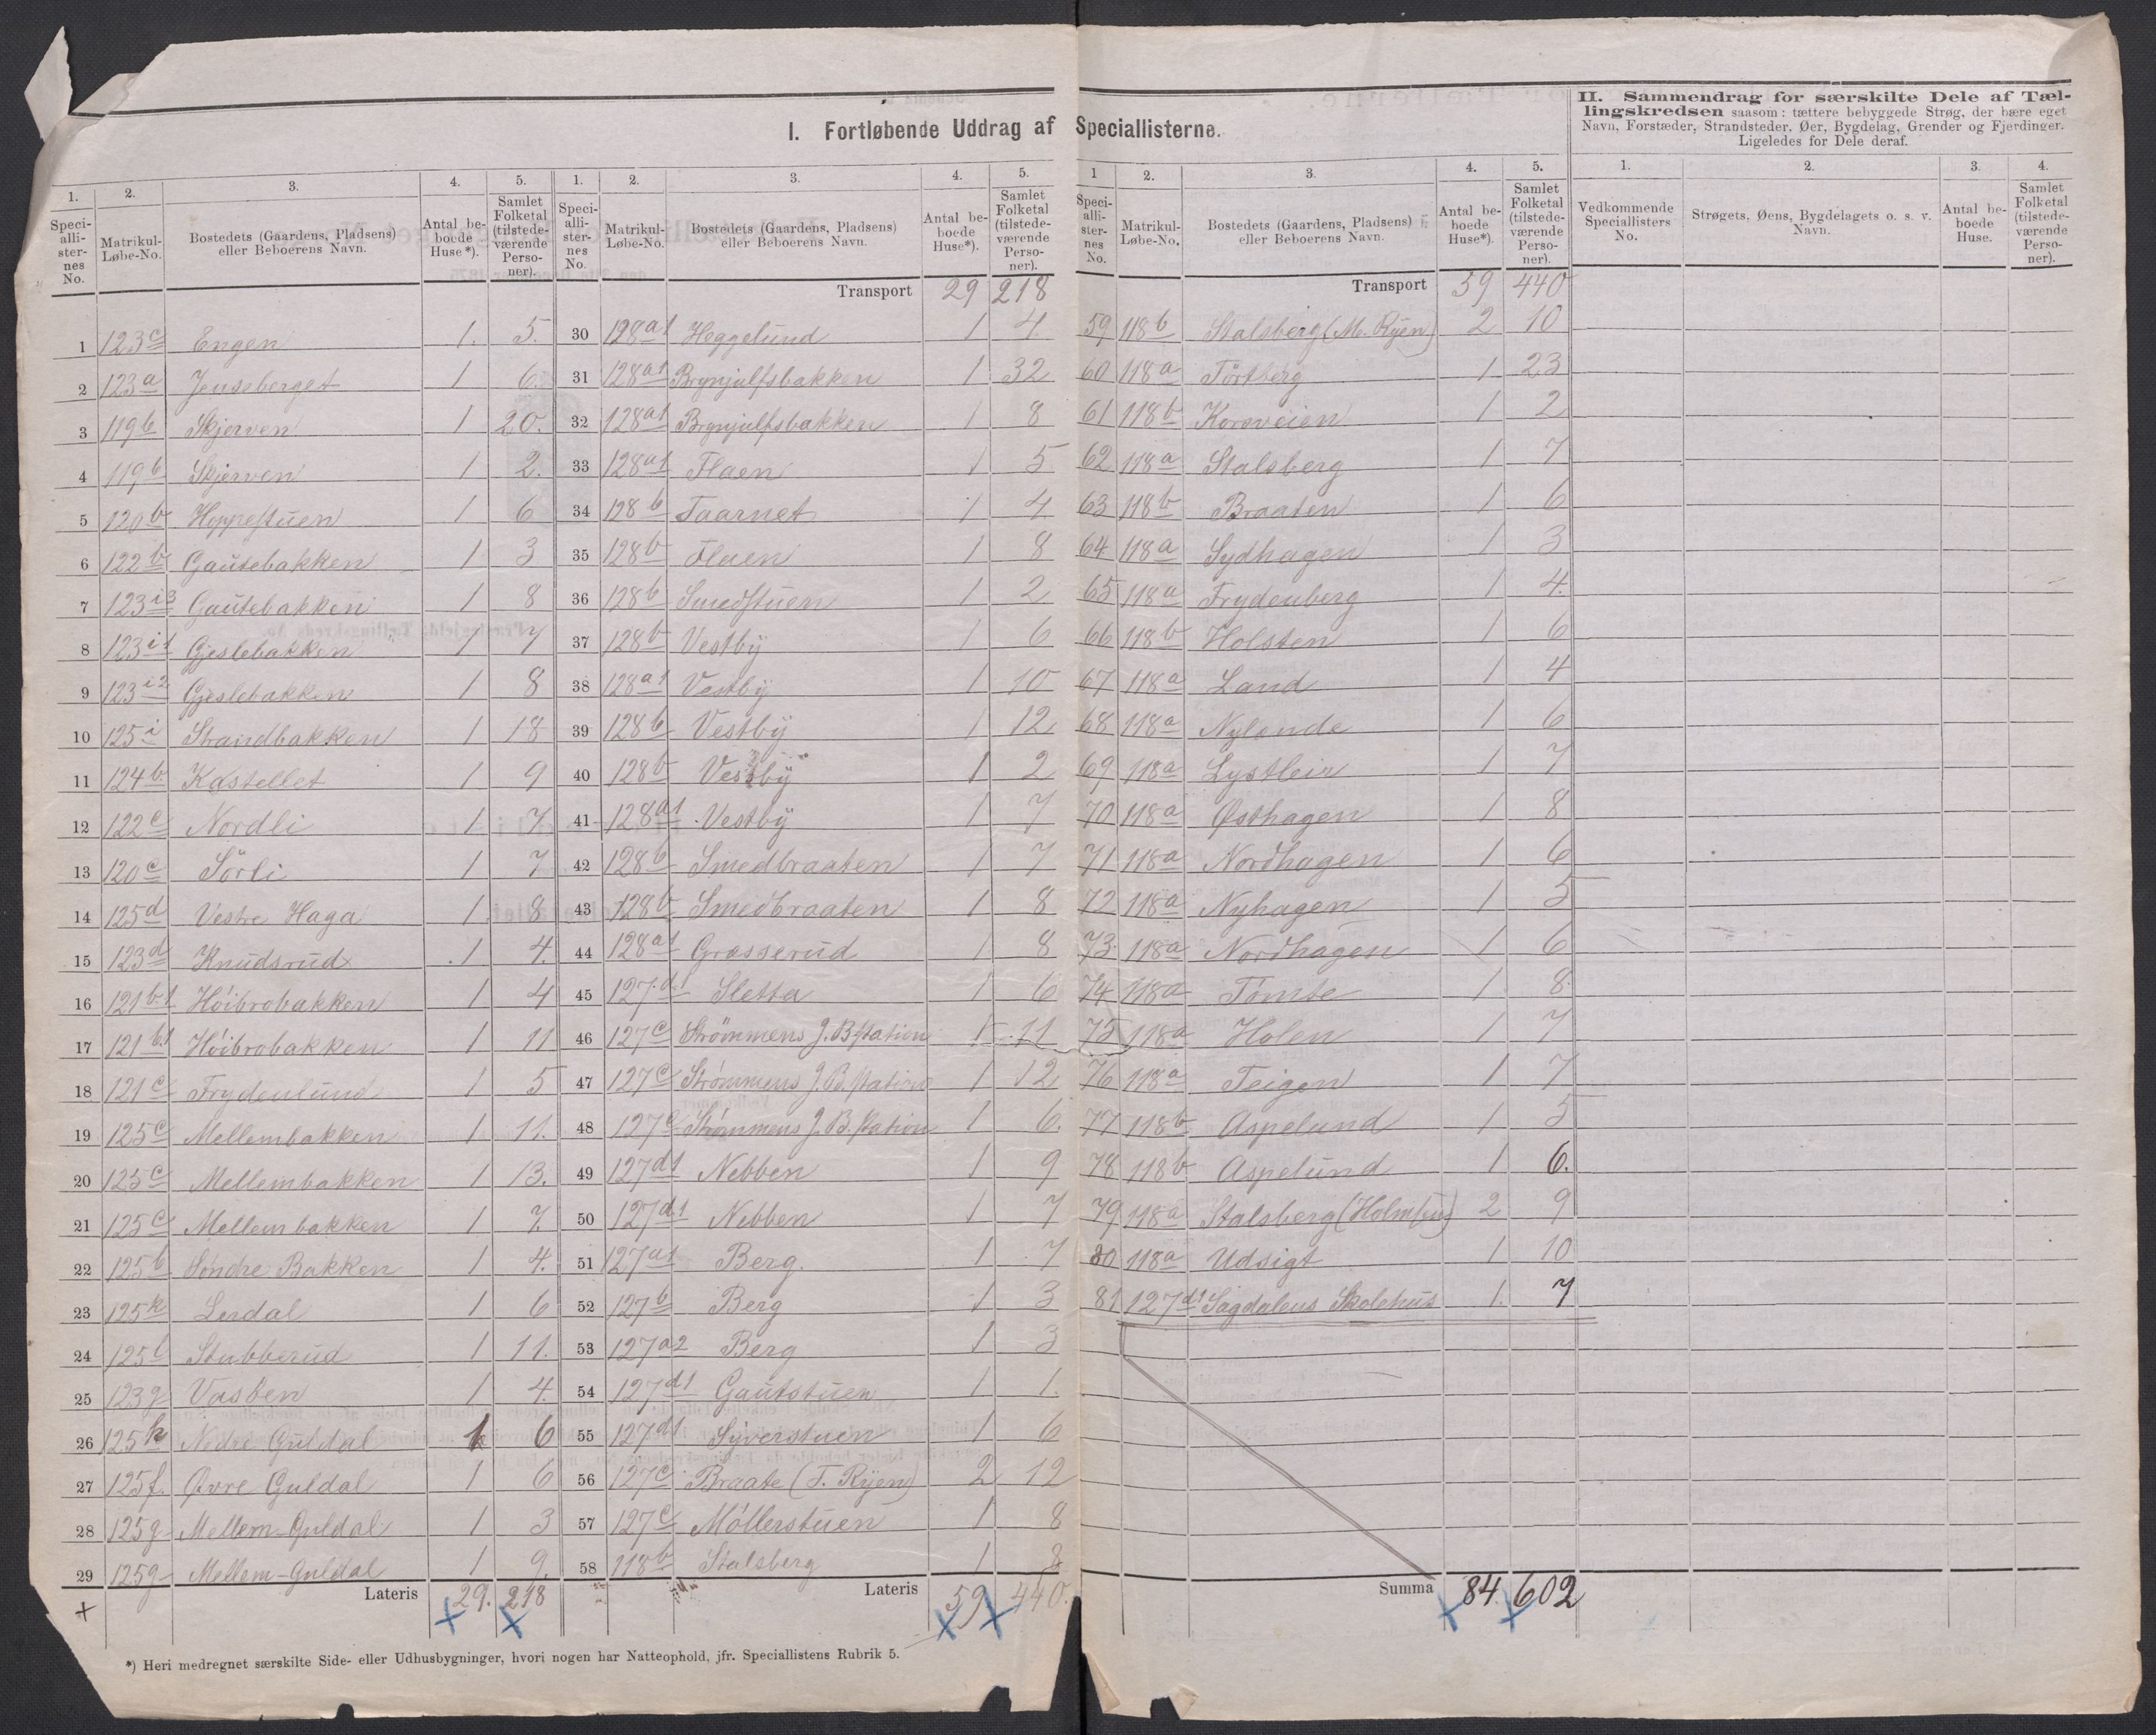 I. Fortløbende Uddrag af Speciallisterne.
1. 2. 3. 4. 5.
Speci-alli-ster-nes No. Matrikul-Løbe-No. Bostedets (Gaardens, Pladsens) eller Beboerens Navn. Antal be-boede Huse*). Samlet Folketal (tilstede-værende Perso-ner).
1 123c Engen 1. 5.
2 123a Jenseberget 1 6.
3 119b Skjerven 1 20.
4 119b Skjerven 1 2.
5 120b Hoppestuen 1 6
6 122b Gautebakken 1 3
7 123i3 Gautebakken 1 8
8 123i1 Gjeslebakken 1 7
9 123i2 Gjeslebakken 1 8
10 125i Strandbakken 1 18
11 124b. Kastellet 1 9
12 122c Nordli 1 7
13 120c Sörli 1 7
14 125d Vestre Haga 1 8
15 123d Knudsrud 1 4.
16 121b.1 Höibrobakken 1 4
17 121b.1 Höibrobakken 1 11
18 121c Frydenlund 1 5
19 125c Mellembakken 1 11.
20 125c Mellembakken 1 13.
21 125c Mellembakken 1 7.
22 125b Söndre Bakken 1 4.
23 125k Lerdal 1 6
24 125l Stubberud 1 11.
25 123g Vasken 1 4.
26 125h Nedre Guldal 1 6
27 125f. Øvre Guldal 1 6
28 125g Mellem-Guldal 1 3
29 125g Mellem-Guldal 1 9.
Lateris 29. 218
1. 2. 3. 4. 5.
Speci-alli-ster-nes No. Matrikul-Løbe-No. Bostedets (Gaardens, Pladsens) eller Beboerens Navn. Antal be-boede Huse*). Samlet Folketal (tilstede-værende Perso-ner).
Transport 29 218
30 128a1 Heggelund 1 4.
31 128a1 Brynjulfsbakken 1 32
32 128a1 Brynjulfsbakken 1 8
33 128a1 Flaen 1 5
34 128b Taarnet 1 4
35 128b Flaen 1 8
36 128b Smedstuen 1 2
37 128b Vestby 1 6
38 128a1 Vestby 1 10
39 128b Vestby 1 12
40 128b Vestby 1 2
41 128a1 Vestby 1 7
42 128b Smedbraaten 1 7
43 128b Smedbraaten 1 8
44 128a1 Grasserud 1 8
45 127.d.1 Sletta 1 6
46 127c Strömmens J. B. Station 1 11
47 127c Strömmens J. B. Station 1 12
48 127c Strömmens J. B. Station 1 6.
49 127d1 Nebben 1 9
50 127d1 Nebben 1 7
51 127a1 Berg. 1 7
52 127b Berg 1 3
53 127a2 Berg 1 3
54 127d1 Gautstuen 1 1.
55 127d1 Syverstuen 1 6
56 127c Braate (T. Ryen) 2 12
57 127c Möllerstuen 1 8
58 118b Stalsberg 1 8
Lateris 59 440.
1 2. 3. 4. 5.
Speci-alli-ster-nes No. Matrikul-Løbe-No. Bostedets (Gaardens, Pladsens) eller Beboerens Navn. Antal be-boede Huse*). Samlet Folketal (tilstede-værende Perso-ner).
Transport 59 440
59 118b Stalsberg (M. Ryen) 2 10
60 118a Törtberg 1 23
61 118b Korsveien 1 2
62 118a Stalsberg 1 7
63 118b Braaten 1 6
64 118a Sydhagen 1 3
65 118a Frydenberg 1 4.
66 118b Holsten 1 6
67 118a Land 1 4
68 118a Nylende 1 6
69 118a Lystleir 1 7
70 118a Østhagen 1 8
71 118a Nordhagen 1 6
72 118a Nyhagen 1 5
73. 118a Nordhagen 1 6
74 118a Tömte 1 8.
75 118a Holen 1 7
76 118a Teigen 1 7
77 118b Aspelund 1 5
78 118b Aspelund 1 6.
79 118a Stalsberg (Holmsen) 2 9
80 118a Udsigt 1 10
81 127d1 Sagdalens Skolehus 1. 7
Summa 84. 602
II. Sammendrag for særskilte Dele af Tæl-
lingskredsen saasom: tættere bebyggede Strøg, der bære eget
Navn, Forstæder, Strandsteder, Øer, Bygdelag, Grender og Fjerdinger.
Ligeledes for Dele deraf.
1. 2. 3. 4.
Vedkommende Speciallisters No. Strøgets, Øens, Bygdelagets o. s. v. Navn. Antal be-boede Huse. Samlet Folketal (tilstede-værende Perso-ner).
*) Heri medregnet særskilte Side- eller Udhusbygninger, hvori nogen har Natteophold, jfr. Speciallistens Rubrik 5.